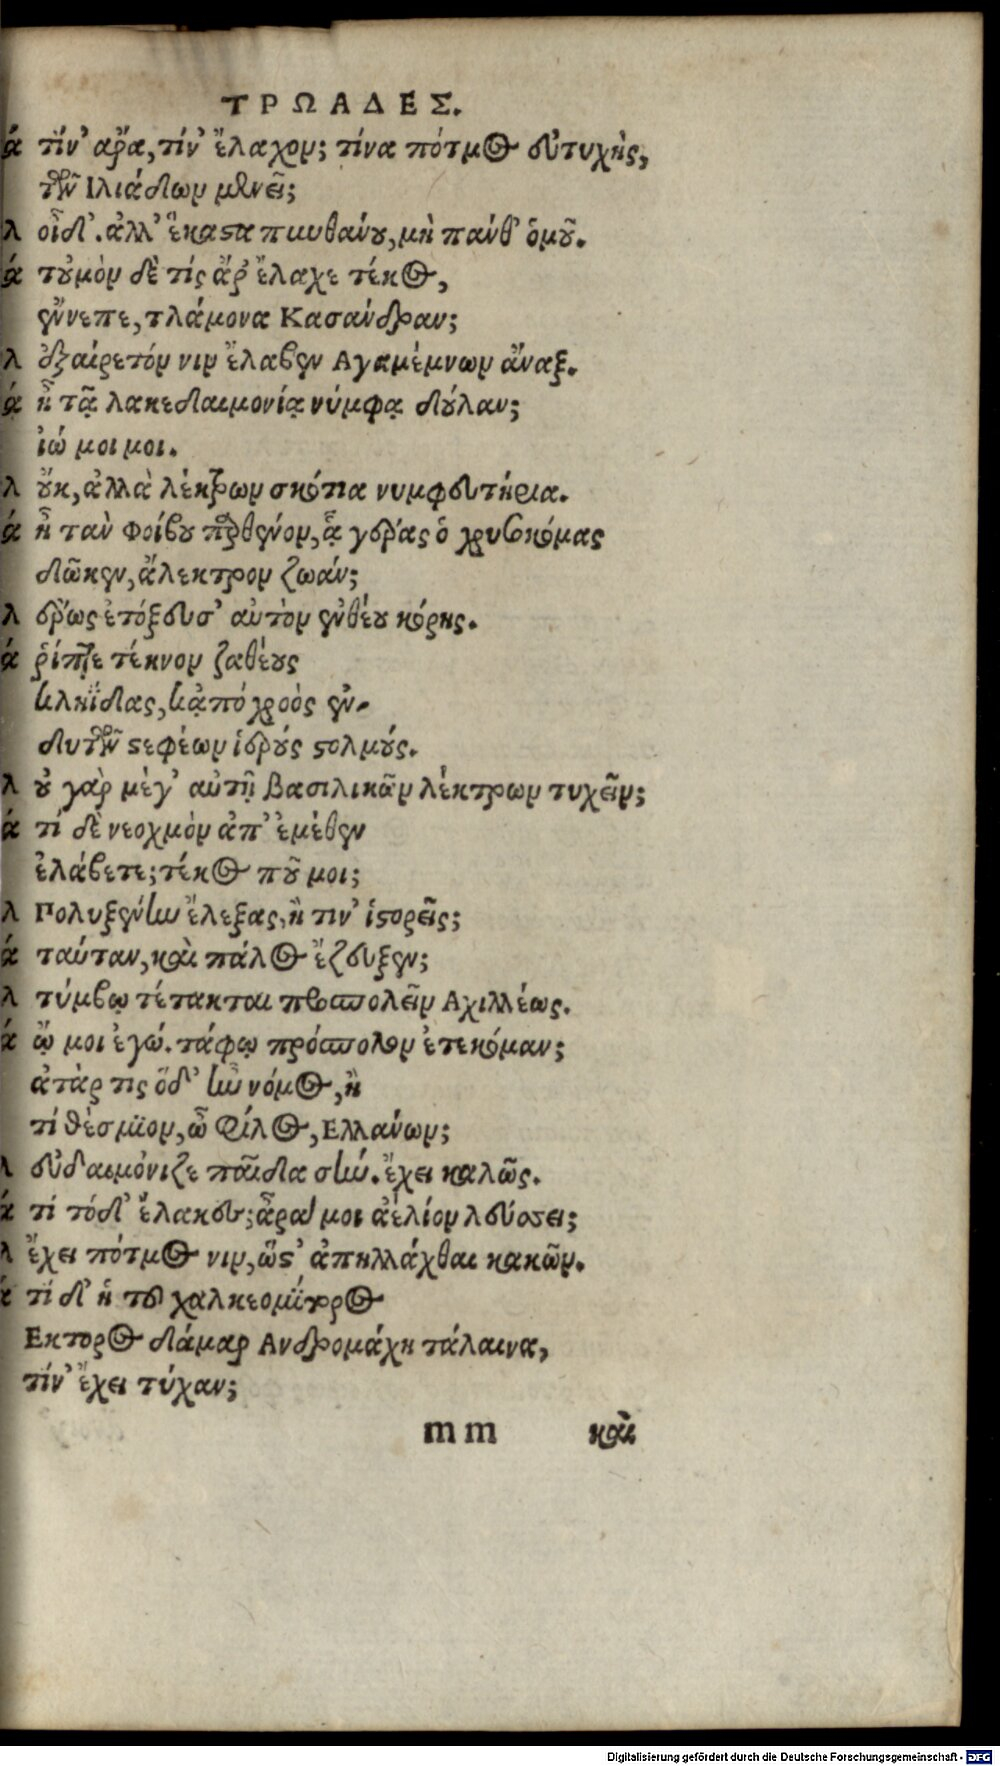 ΤΡΩΑΔΕΣ.
ά τίν' ἄρα, τίν' ἔλαχον; τίνα πότμος εὐτυχὴς,
τῶν Ιλιάδων μένει;
λ οἶδ'. ἀλλ' ἕκαστα πυνθάνου, μὴ πάνθ' ὁμοῦ.
ά τοὐμὸν δὲ τίς ἄρ' ἔλαχε τέκος,
ἔννεπε, τλάμονα Κασάνδραν;
λ ἐξαίρετόν νιν ἔλαβεν Αγαμέμνων ἄναξ.
ά ἦ τᾷ λακεδαιμονίᾳ νύμφᾳ δούλαν;
ἰώ μοι μοι.
λ οὔκ, ἀλλὰ λέκτρων σκότια νυμφευτήρια.
ά ἦ τὰν Φοίβου παρθένον, ᾇ γέρας ὁ χρυσοκόμας
δῶκεν, ἄλεκτρον ζωάν;
λ ἔρως ἐτόξευσ' αὐτὸν ἐνθέου κόρης.
ά ῥίπτε τέκνον ζαθέους
κληΐδας, κἀπὸ χροὸς ἐν-
δυτῶν στεφέων ἱεροὺς στολμούς.
λ οὐ γὰρ μέγ' αὐτῇ βασιλικῶν λέκτρων τυχεῖν;
ά τί δὲ νεοχμὸν ἀπ' ἐμέθεν
ἐλάβετε; τέκος ποῦ μοι;
λ Πολυξένην ἔλεξας, ἢ τιν' ἱστορεῖς;
ά ταύταν, καὶ πάλος ἔζευξεν;
λ τύμβῳ τέτακται προσπολεῖν Αχιλλέως.
ά ᾤ μοι ἐγώ. τάφῳ πρόσπολον ἐτεκόμαν;
ἀτὰρ τις ὅδ' ἦν νόμος, ἢ
τί θέσμιον, ὦ Φίλος, Ελλάνων;
λ εὐδαιμόνιζε παῖδα σήν. ἔχει καλῶς.
ά τί τόδ' ἔλακες; ἆρά μοι ἀέλιον λεύσσει;
λ ἔχει πότμος νιν, ὥστ' ἀπηλλάχθαι κακῶν.
ά τί δ' ἡ τοῦ χαλκεομίτρος
Εκτορος δάμαρ Ανδρομάχη τάλαινα,
τίν' ἔχει τύχαν;
mm καὶ
Digitalisierung gefördert durch die Deutsche Forschungsgemeinschaft - DFG